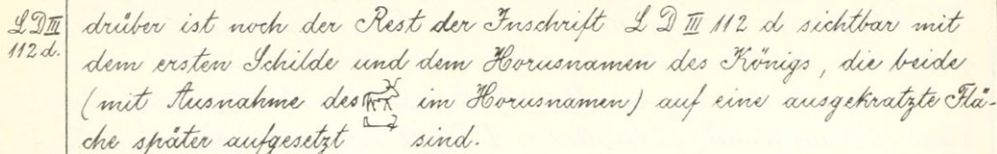 L D III
112 d.
drüber ist noch der Rest der Inschrift L D III 112 d sichtbar mit
dem ersten Schilde und dem Horusnamen des Königs, die beide
(mit Ausnahme des im Horusnamen) auf eine ausgekratzte Flä-
che später aufgesetzt sind.